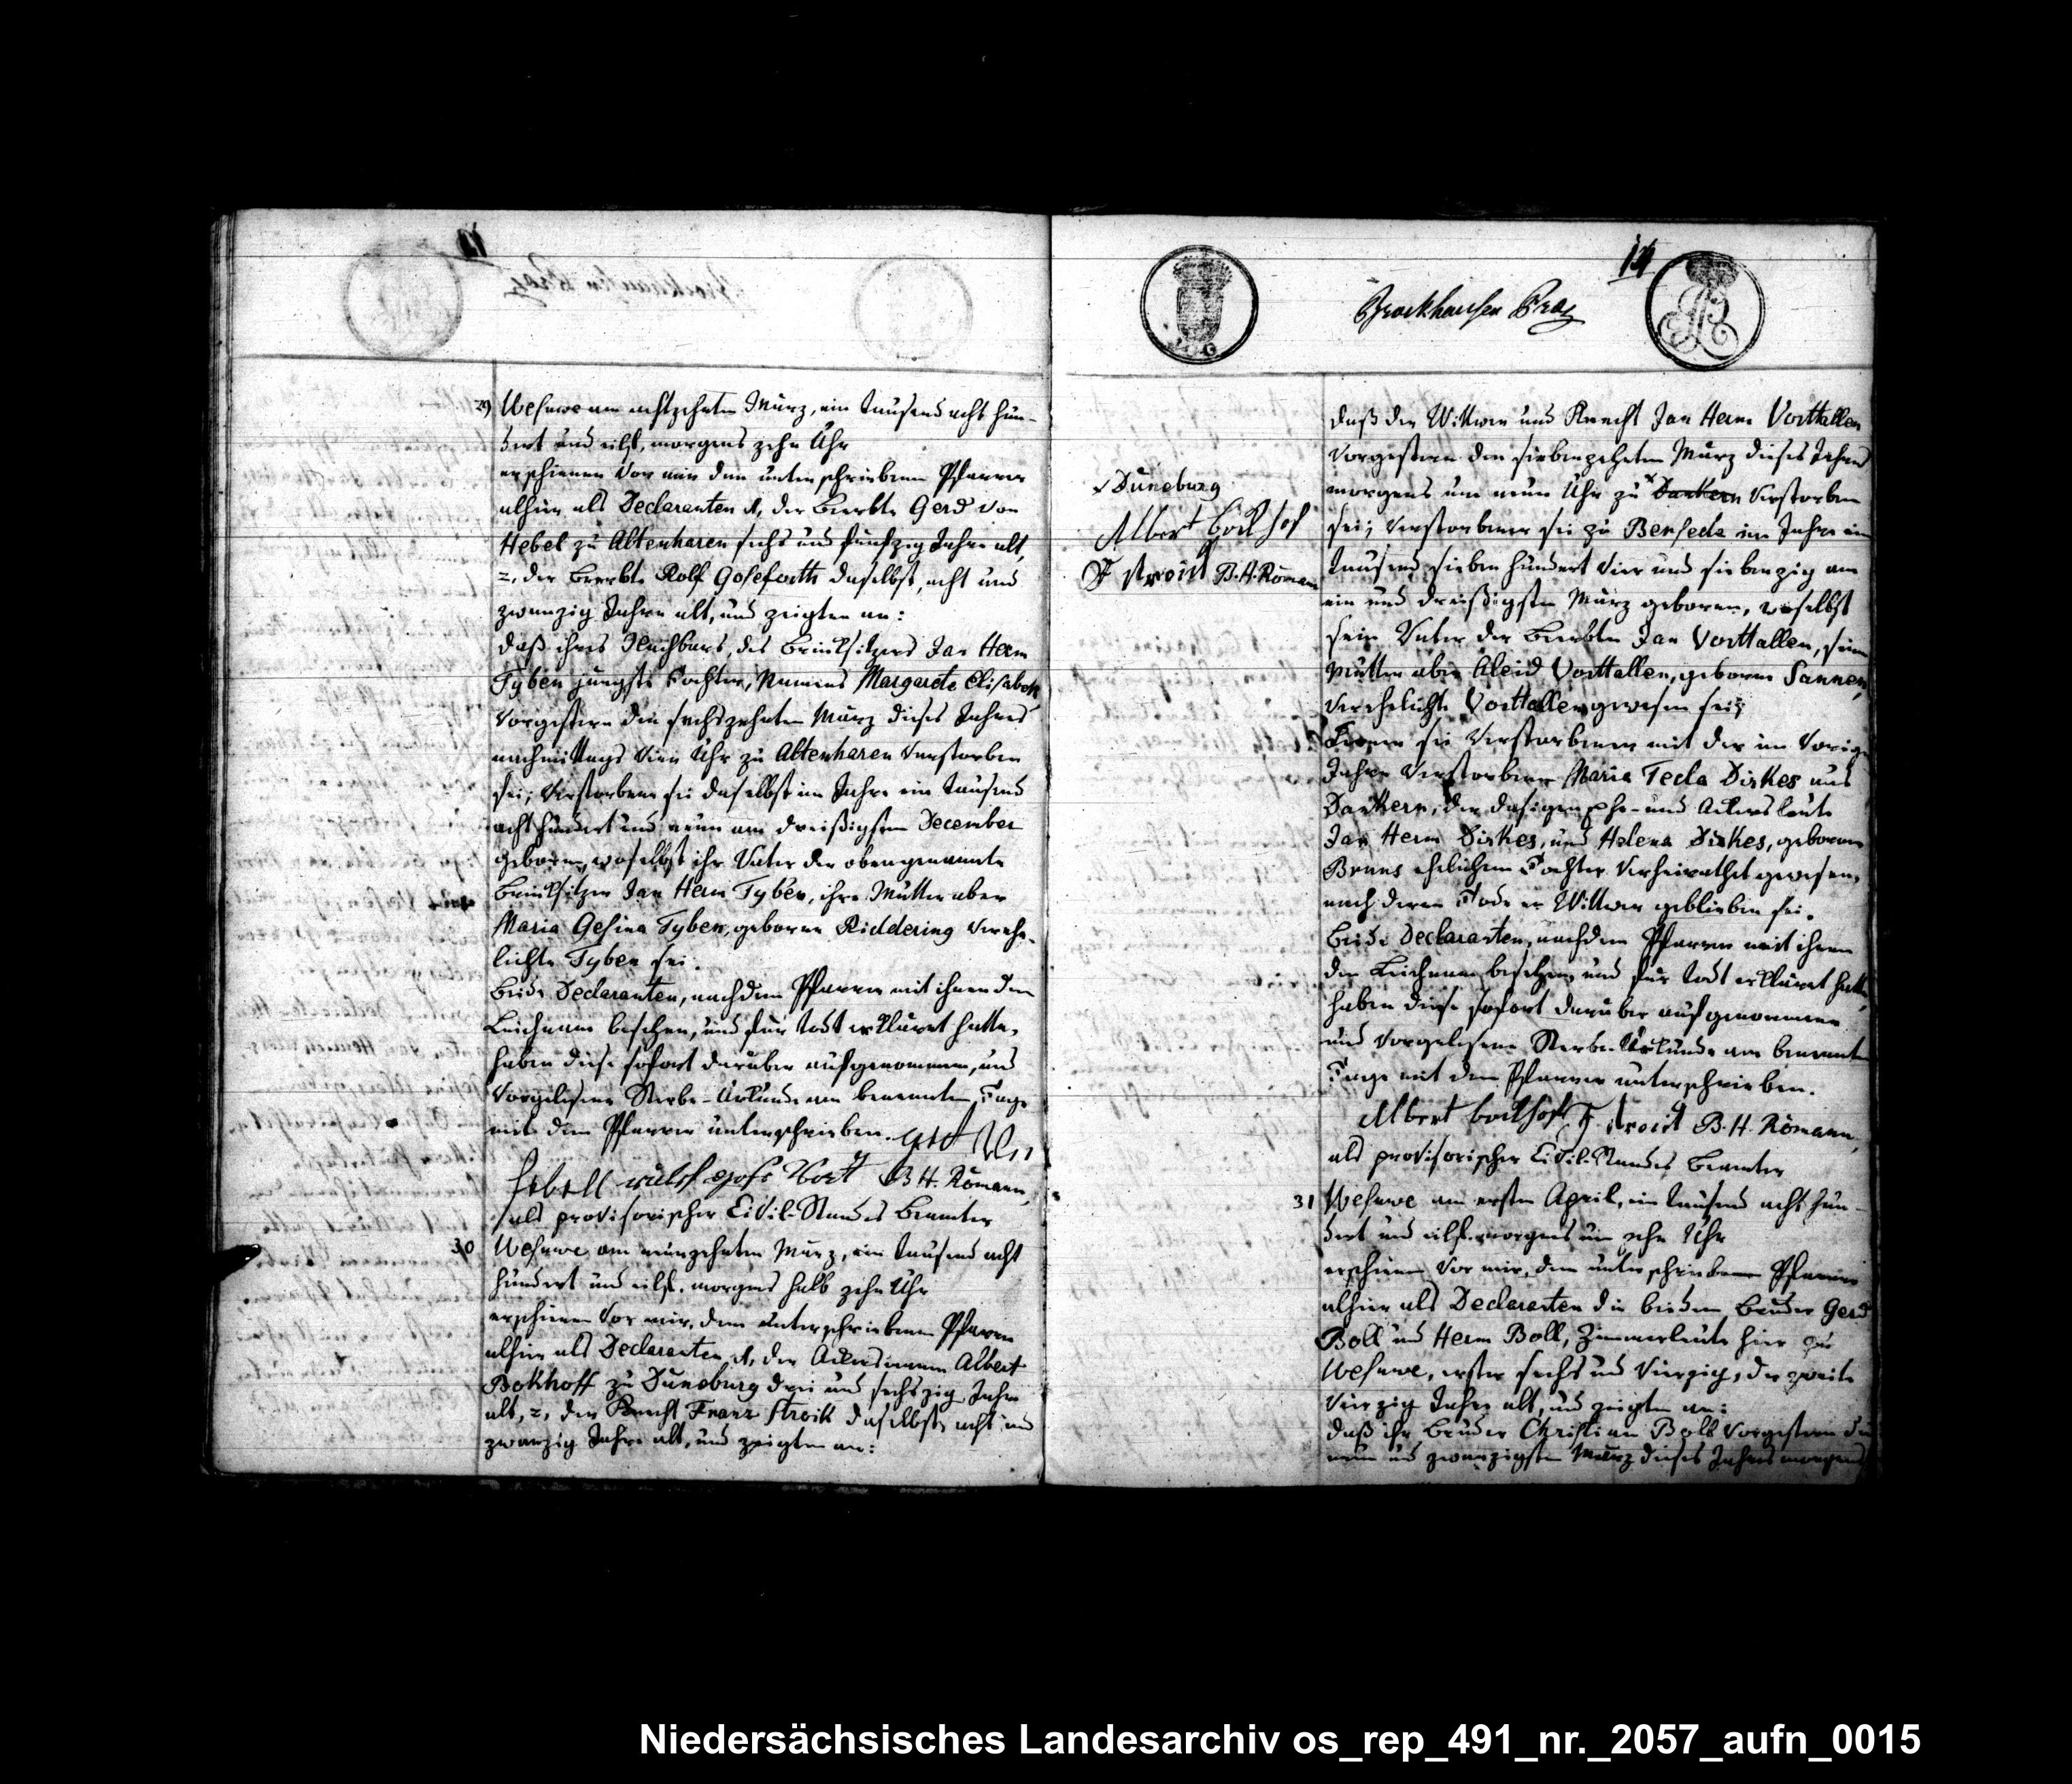 29 Wesuwe am achtzehnten März, ein tausend acht hun-
dert und eilf, morgens zehn Uhr
erschienen vor mir dem unterschriebenen Pfarrer
alhier als Declaranten 1, der Beerbte Gerd von
Hebel zu Altenharen sechs und fünfzig Jahre alt,
2, der Beerbte Rolf Goseforth daselbst, acht und
zwanzig Jahre alt, und zeigten an:
daß ihres Nachbars, des Brinksitzers Jan Herm
Tyben jüngste Tochter, Namens Margarete Elisabeth
vorgestern den sechszehnten März dieses Jahres
nachmittags vier Uhr zu Altenharen verstorben
sei; Verstorbene sei daselbst im Jahre ein tausend
acht hundert und neun am dreißigsten December
geboren, woselbst ihr Vater der obengenannte
Brinksitzer Jan Herm Tyben, ihre Mutter aber
Maria Gesina Tyben, geborne Riddering verehe-
lichte Tyben sei.
Beide Declaranten, nachdem Pfarrer mit ihnen den
Leichnam besehen, und für todt erkläret hatte,
haben diese sofort darüber aufgenommen, und
vorgelesene Sterbe-Urkunde am benannten Tage
mit dem Pfarrer unterschrieben.
B H. Römann,
als provisorischer Civil-Standes Beamter
30 Wesuwe am neunzehnten März, ein tausend acht
hundert und eilf. morgens halb zehn Uhr
erschienen vor mir, dem unterschriebenen Pfarrer
alhier als Declaranten 1, der Ackersmann Albert
Bokhoff zu Duneburg drei und sechszig Jahre
alt, 2, der Knecht Franz Stroik daselbst, acht und
zwanzig Jahre alt, und zeigten an:
14
Brockhausen Praes
x Duneburg
Albert Bockhof
F Stroick B.H. Römann
daß der Wittwer und Knecht Jan Herm Vorttallen
vorgestern den siebenzehnten März dieses Jahres
morgens um neun Uhr zu x Dankern verstorben
sei; Verstorbener sei zu Berseda im Jahre ein
tausend sieben hundert vier und siebenzig am
ein und dreißigsten März geboren, woselbst
sein Vater der Beerbte Jan Vorttallen, seine
Mutter aber Aleid Vorttallen, geborne Sannen,
verehelichte Vorttallen gewesen sei;
Ferner sei Verstorbener mit der im vorigen
Jahre verstorbenen Maria Tecla Dirkes aus
Dankern, der dasigen Ehe- und Ackersleute
Jan Herm Dirkes, und Helena Dirkes, geborne
Bruns ehelichen Tochter verheirathet gewesen,
nach deren Tode er Wittwer geblieben sei.
Beide Declaranten, nachdem Pfarrer mit ihnen
den Leichnam besehen, und für todt erkläret hatte,
haben diese sofort darüber aufgenommene
und vorgelesene Sterbe-Urkunde am benannten
Tage mit dem Pfarrer unterschrieben.
Albert Bockhoff F Stroick B.H. Römann,
als provisorischer Civil-Standes Beamter
31 Wesuwe am ersten April, ein tausend acht hun-
dert und eilf. morgens um zehn Uhr
erschienen vor mir, dem unterschriebenen Pfarrer
alhier als Declaranten die beiden Brüder Gerd
Boll und Herm Boll, Zimmerleute hier zu
Wesuwe, erster sechs und vierzig, der zweite
vierzig Jahre alt, und zeigten an:
daß ihr Bruder Christian Boll vorgestern den
neun und zwanzigsten März dieses Jahres morgens
Niedersächsisches Landesarchiv os_rep_491_nr._2057_aufn_0015